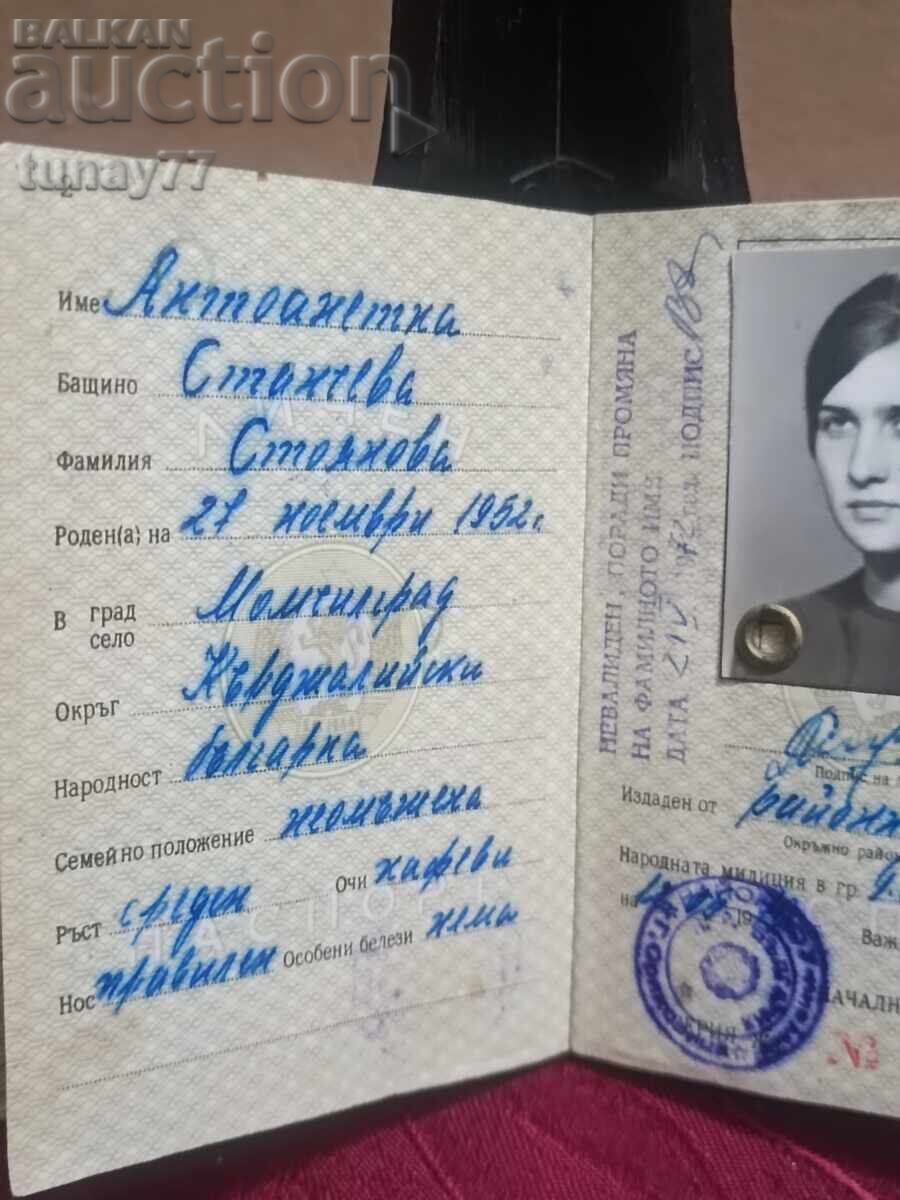 BALKAN
auction
tunay77
2
Име Антоанетка
Бащино Станчева
Фамилия Стоянова
Роден(а) на 27 ноември 1952 г.
В град село Момчилград
Окръг Кърджалийски
Народност българка
Семейно положение неомъжена
Ръст среден Очи кафеви
Нос правилен Особени белези нема
ЛИЧЕН
ПАСПОРТ
НЕВАЛИДЕН, ПОРАДИ ПРОМЯНА
НА ФАМИЛНОТО ИМЕ
ДАТА ПОДПИС
Подпис на
Издаден от
Окръжно район
Народната милиция в гр.
на 19
Важ
НАЧАЛН
СЕРИЯ
№